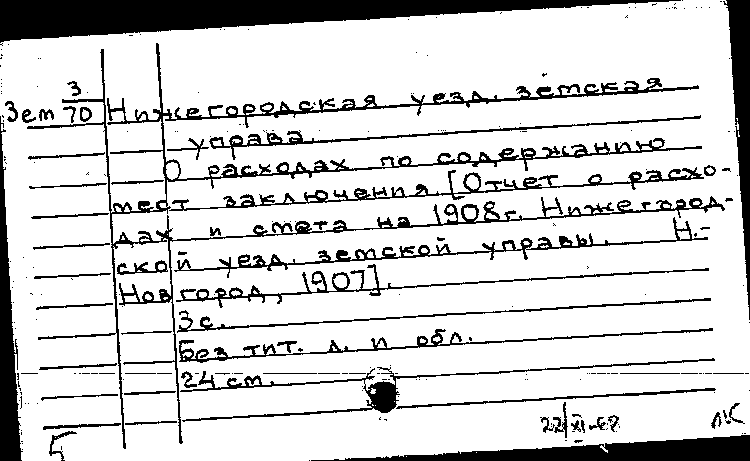 Зем 3/70 Нижегородская уезд. земская
управа.
О расходах по содержанию
мест заключения. [Отчет о расхо-
дах и смета на 1908г. Нижегород-
ской уезд. земской управы. Н.-
Новгород, 1907].
3 с.
Без тит. л. и обл.
24 см.
5
ЛК